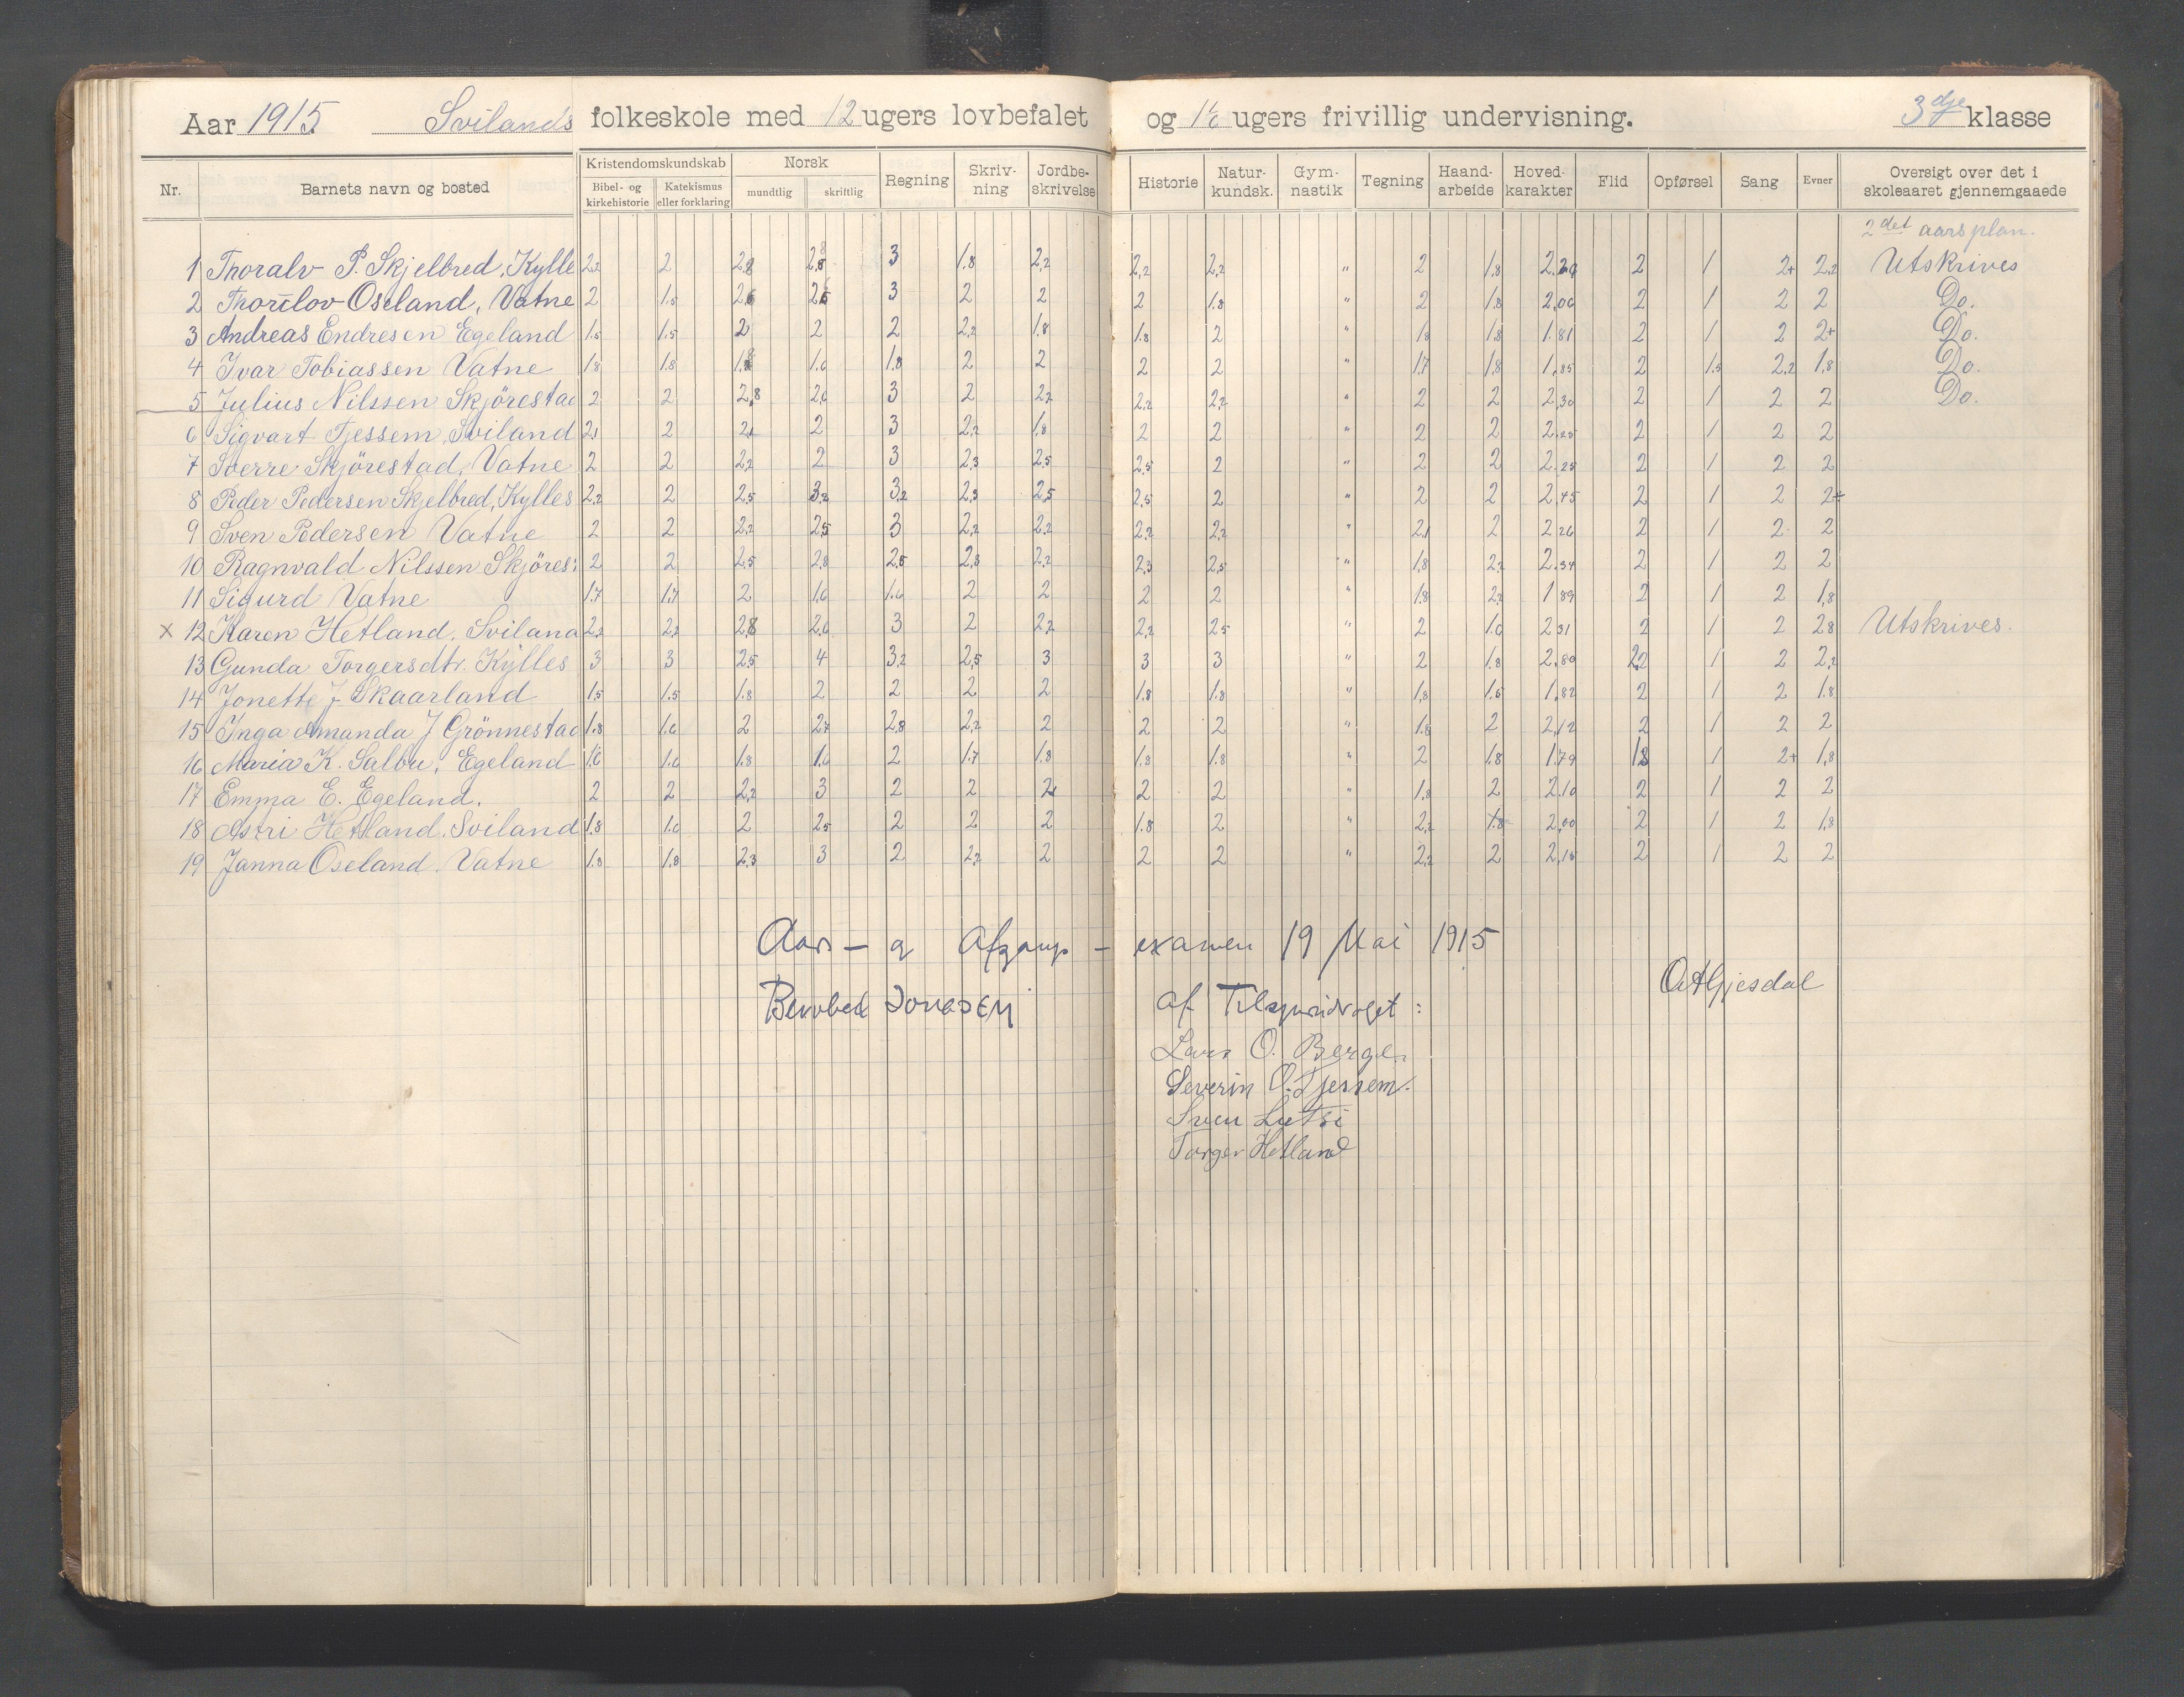 Aar 1915. Svilands folkeskole med 12 ugers lovbefalet og ugers frivillig undervisning. 3dje klasse
Nr. Barnets navn og bosted Kristendomskundskab Norsk Regning Skriv-ning Jordbe-skrivelse Historie Natur-kundsk. Gym-nastik Tegning Haand-arbeide Hoved-karakter Flid Opførsel Sang Evner Oversigt over det i skoleaaret gjennemgaaede
Bibel- og kirkehistorie Katekismus eller forklaring mundtlig skriftlig
2det aarsplan.
1 Thoralv P. Skjelbred, Kylle 2,2 2 2,8 2,8 3 1.8 2,2 2,2 2,2 " 2 1.8 2 1 2+ 2,2 Utskrives
2 Oseland, Vatne 2 1.5 3 2 2 2 1.8 " 2 1.8 2,00 2 1 2 2 Do.
3 Andreas Endresen Egeland 1.5 1.5 2 2 2 2,2 1.8 1.8 2 " 1.8 1.8 1.81 2 1 2 2+ Do.
4 Ivar Tobiassen Vatne 1.8 1.8 1.8 1.6 1.8 2 2 2 2 " 1.7 1.8 1.85 2 1.5 2,2 1,8 Do.
5 Julius Nilssen Skjörestad 2 2 2,8 2,6 3 2 2,2 2,2 2,2 " 2 2 2,30 2 1 2 2 Do.
6 Sigvart Tjessem, Sviland 2,1 2 2,1 2 3 2,2 1.8 2 2 " 2 2 2.25 2 1 2 2
7 Sverre Skjörestad, Vatne 2 2 2,2 2 3 2,3 2,5 2,5 2 " 2 2 2.25 2 1 2 2
8 Peder Pedersen Skjelbred, Kylles 2,2 2 2,5 3,2 3,2 2,3 2,5 2,5 2 " 2 2 2,45 2 1 2 2+
9 Sven Pedersen Vatne 2 2 2,2 2,5 3 2,2 2,2 2,2 2,2 " 2,1 2 2 26 2 1 2 2
10 Ragnvald Nilssen Skjöres: 2 2 2,5 2,8 2,5 2,8 2,2 2,3 2,5 " 1,8 2,2 2.34 2 1 2 2
11 Sigurd Vatne 1.7 1.7 2 1.6 1.6 2 2 2 2 " 1.8 2,2 1 89 2 1 2 1,8
x 12 Karen Hetland. Sviland 2,2 2,2 2,8 2,6 3 2 2,2 2,2 2,5 " 2 1.6 2 31 2 1 2 2 8 Utskrives.
13 Gunda Torgersdtr. Kylles 3 3 2,5 4 3,2 2,5 3 3 3 " 2 1.8 2,80 2,2 1 2 2,2
14 Jonette J Skaarland 1.5 1.5 1.8 2 2 2 2 1.8 1.8 " 1,8 1.5 1,82 2 1 2 1.8
15 Inga Amanda J Grönnestad 1.8 1.6 2 2,7 2,8 2,2 2 2 2 " 1.8 2 2,12 2 1 2 2
16 Maria K. Salbu, Egeland 1.6 1.6 1.8 1.6 2 1.7 1.8 1.8 1.8 " 2 1.8 1.79 1,8 1 2+ 1,8
17 Emma E. Egeland. 2 2 2,2 3 2 2 2 2 " 1,8 2 2.10 2 1 2 2
18 Astri Hetland. Sviland 1.8 1.6 2 2,5 2 2 2 1.8 2 " 2,2 1.8 2,00 2 1 2 1,8
19 Janna Oseland. Vatne 1.8 1.8 2,3 3 2 2,2 2 2 2 " 2,2 2 2,15 2 1 2 2
Aars- og Afgangs-examen 19 Mai 1915
Jonasen af Tilsynsudvalget: Gjesdal
Lars O. Berge.
Severin O. Tjessem.
Sven Lutsi
Torger Hetland